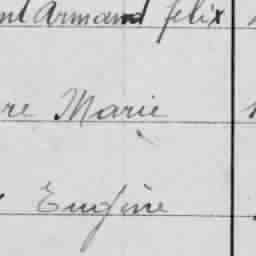 Armand felix
re Marie
Eugène